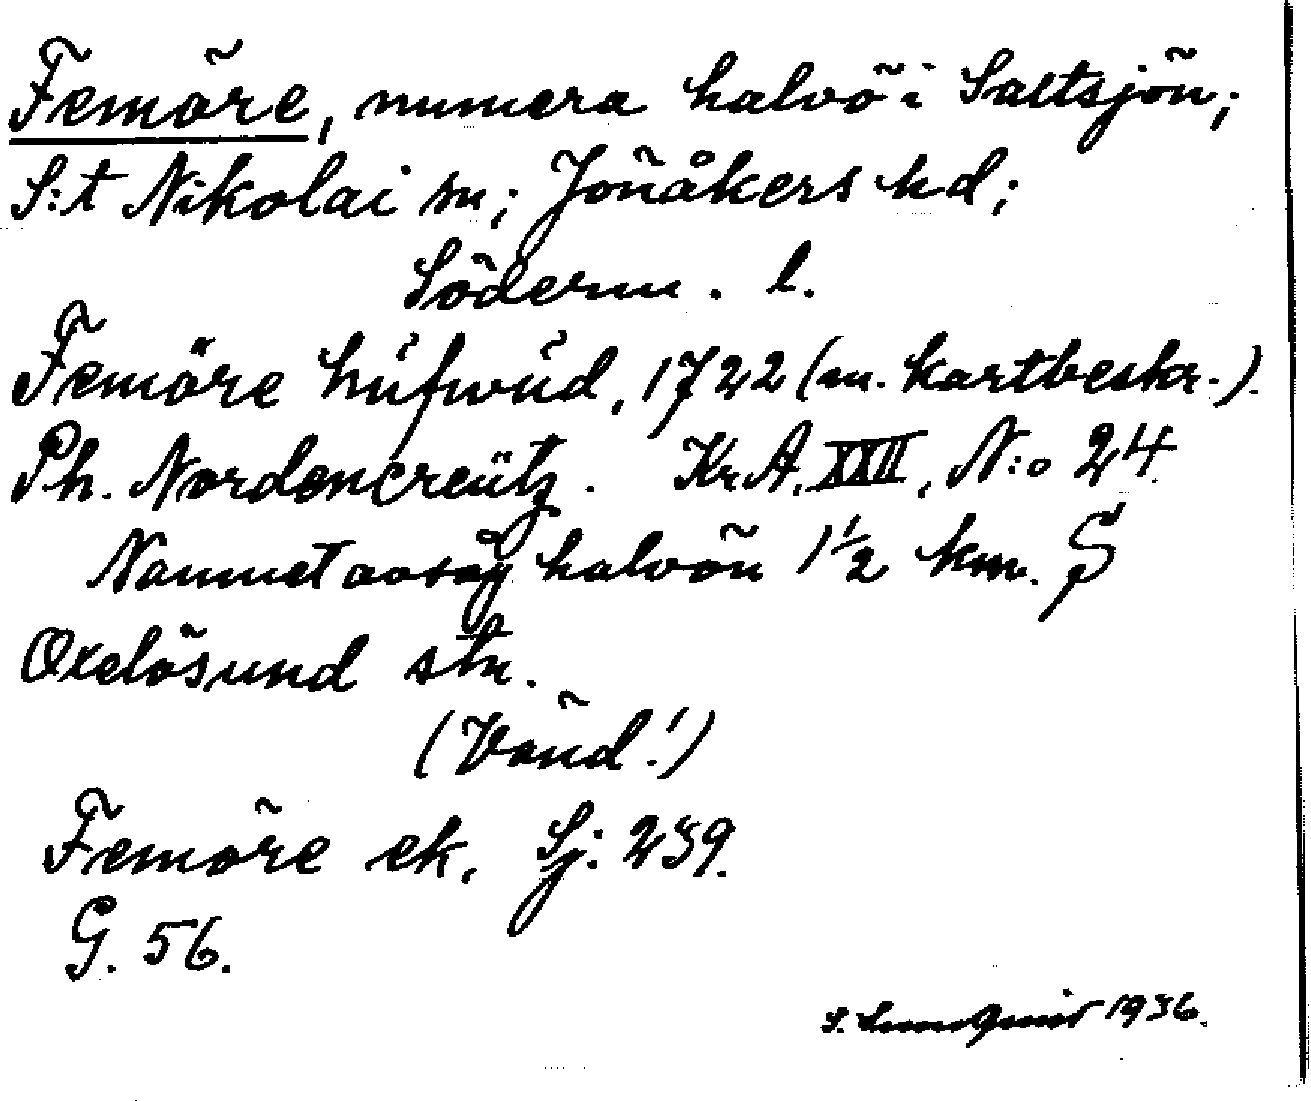 Femöre, numera halvö i Saltsjön;
S:t Nikolai sn; Jönåkers hd;
Söderm. l.
Femöre hüfwüd, 1722 (m. kartbeskr.).
Ph. Nordencreütz. Kr.A. XXII, N:o 24
Namnet avsåg halvön 1½ km. S
Oxelösund stn.
(Vänd!)
Femöre ek. Sj: 259.
G. 56.
S. 1936.